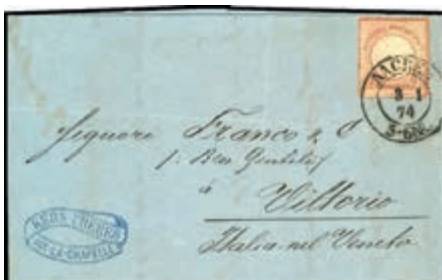 AACHEN
3 1
74
5-6N.
Signore Franco & C
à
Vittorio
Italia nel Veneto
FRERES
AIX-LA-CHAPELLE